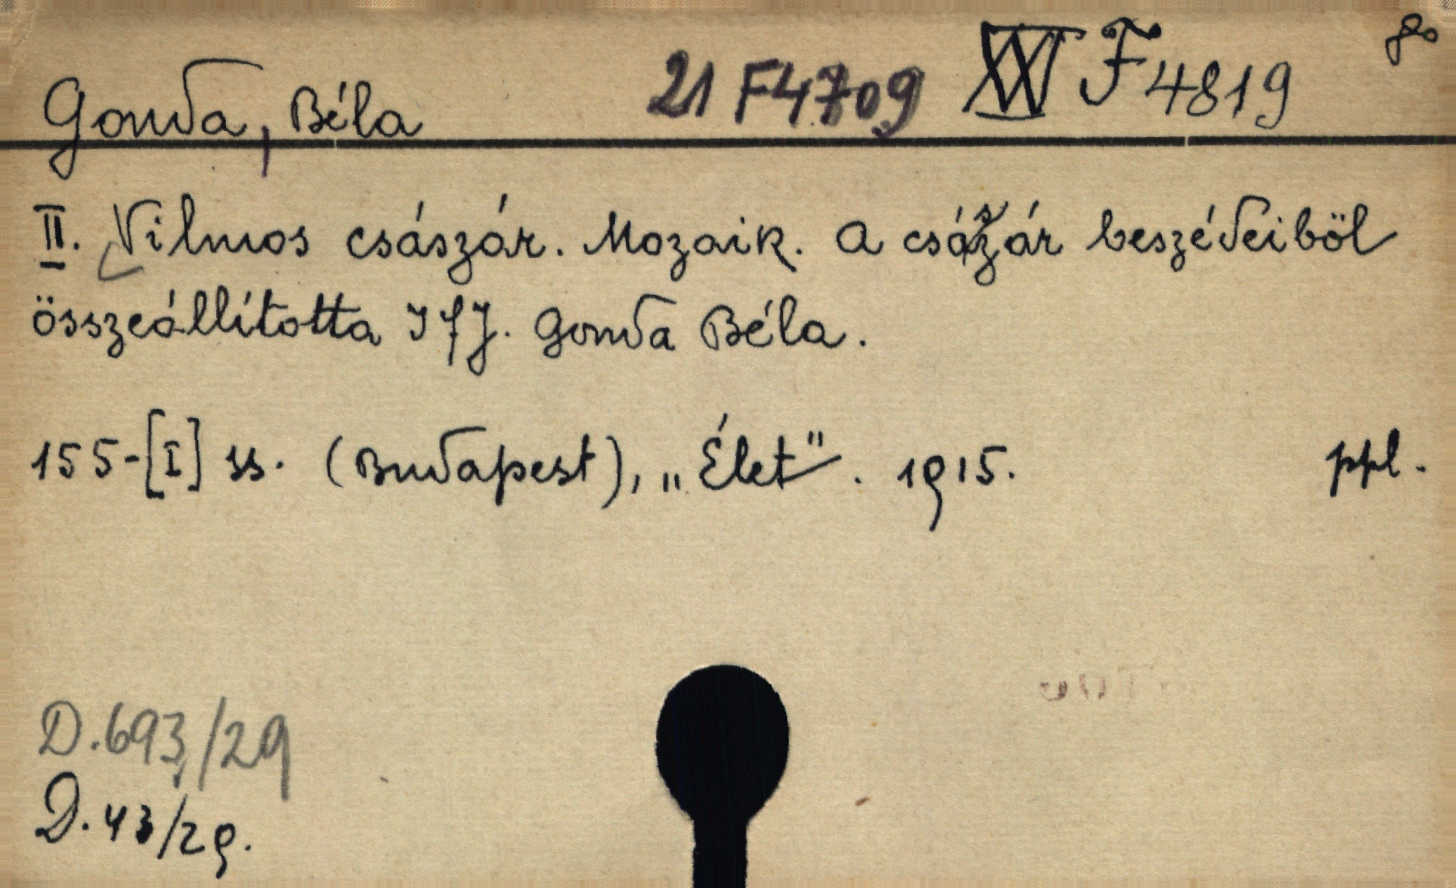 Gonda, Béla 21 F4709 XXI F 4819 8°
II. Vilmos császár. Mozaik. A császár beszédeiből
összeállította Ifj. Gonda Béla.
155-[1] ss. (Budapest), „Élet". 1915. ppl.
D.693/29
D.43/29.